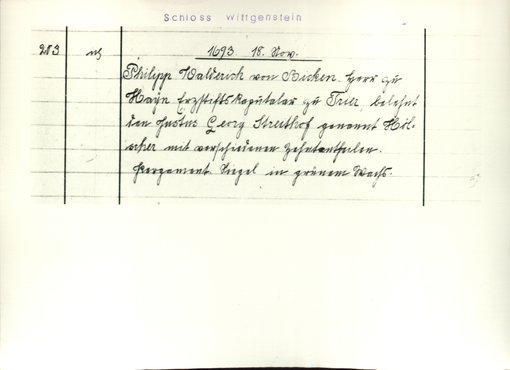 Schloss Wittgenstein
283
1693 18. Nov.
Philipp Walderich von Bicken Herr zu
Hayn Erzstiftskapitular zu Trier, belehnt
den Justus Georg Streithof genannt Höl-
scher mit verschiedenen Zehntantheilen.
Pergament. Siegel in grünem Wachs.